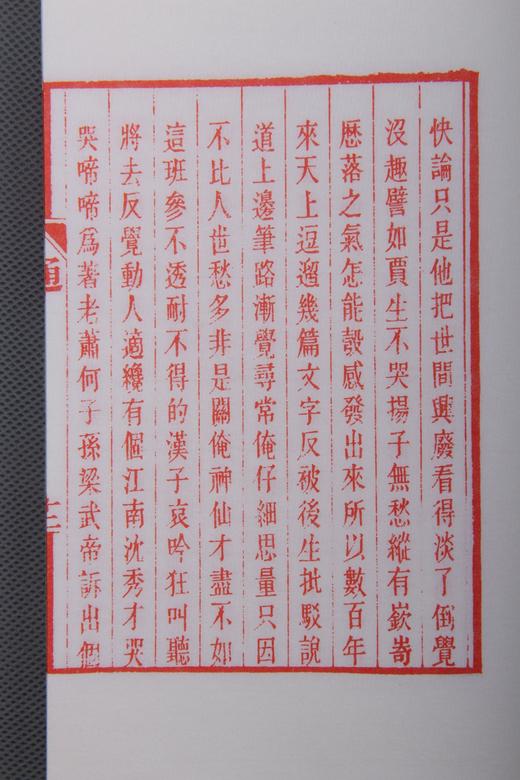 快論只是他把世間興廢看得淡了倒覺
沒趣譬如賈生不哭揚子無愁縱有嶔嵜
歷落之氣怎能彀感發出來所以數百年
來天上逗遛幾篇文字反被後生批駁說
道上邊筆路漸覺尋常俺仔細思量只因
不比人世愁多非是關俺神仙才盡不如
這班參不透耐不得的漢子哀吟狂叫聽
將去反覺動人適纔有個江南沈秀才哭
哭啼啼爲著老蕭何子孫梁武帝訴出個
通